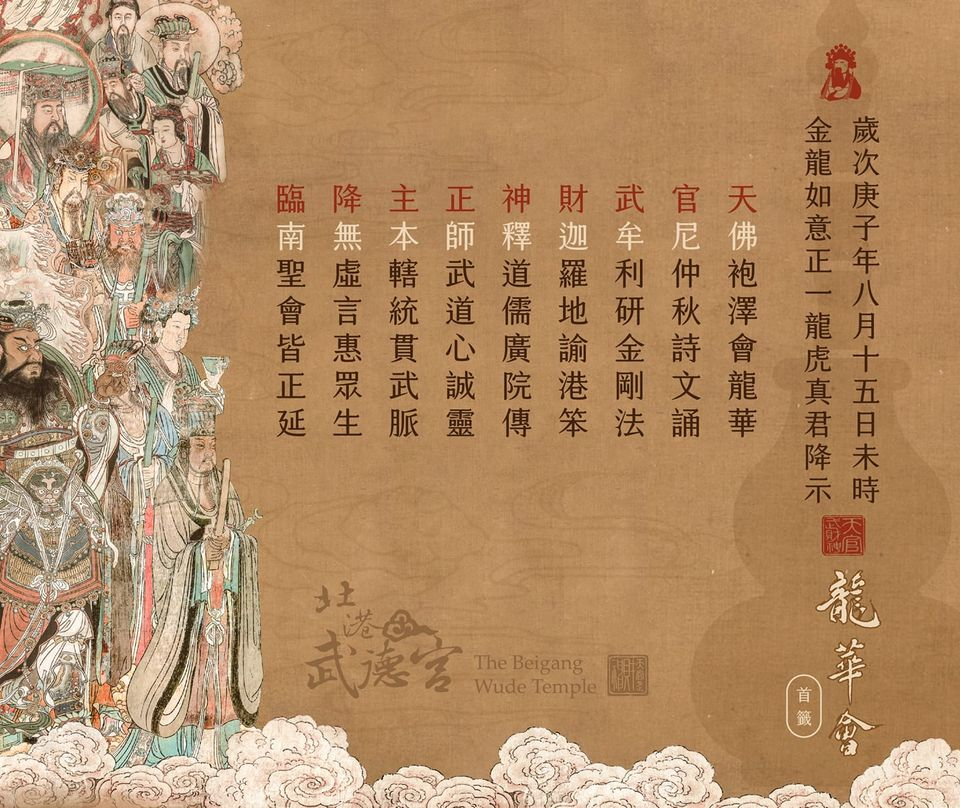 歲次庚子年八月十五日未時
金龍如意正一龍虎真君降示
天官武財神
龍華會
首籤
天佛袍澤會龍華
官尼仲秋詩文誦
武牟利研金剛法
財迦羅地諭港笨
神釋道儒廣院傳
正師武道心誠靈
主本轄統貫武脈
降無虛言惠眾生
臨南聖會皆正延
北港
武德宮
The Beigang
Wude Temple